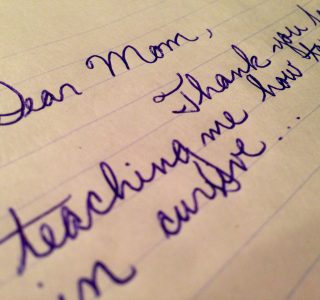 Dear Mom,
Thank you
teaching me how to
in cursive...